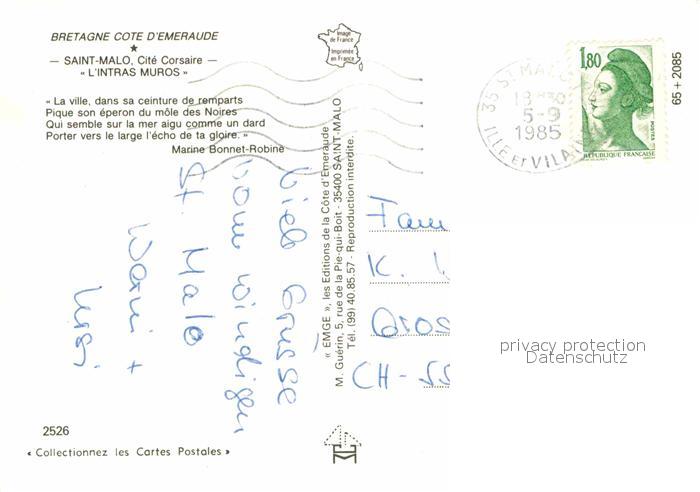 BRETAGNE COTE D'EMERAUDE
— SAINT-MALO, Cité Corsaire —
« L'INTRAS MUROS »
« La ville, dans sa ceinture de remparts
Pique son éperon du môle des Noires
Qui semble sur la mer aigu comme un dard
Porter vers le large l'écho de ta gloire. »
Marine Bonnet-Robine
Image
de France
Imprimée
en France
35 ST MALO
18H30
5-9
1985
ILLE et VILAINE
1,80
POSTES
RÉPUBLIQUE FRANÇAISE
65 + 2085
Viele Grüsse
vom windigen
St. Malo
+
« EMGE », les Editions de la Côte d'Emeraude
M. Guérin, 5, rue de la Pie-qui-Boit - 35400 SAINT-MALO
Tél. (99) 40.85.57 - Reproduction interdite.
Fam
K.
CH-55
privacy protection
Datenschutz
2526
« Collectionnez les Cartes Postales »